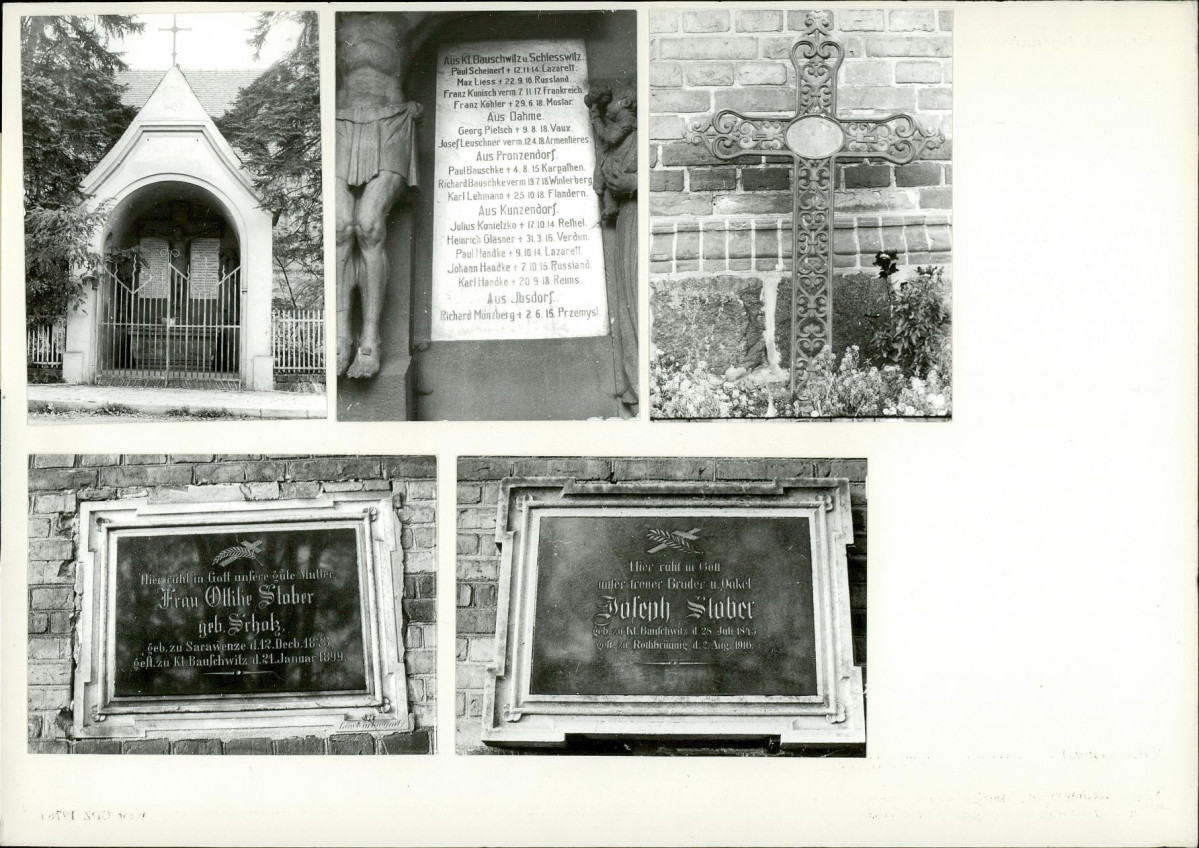 Aus Kl. Bauschwitz u. Schlesswitz.
Paul Scheinert + 12.11.14. Lazarett.
Max Liess + 22.9.16. Russland.
Franz Kunisch verm. 7.11.17. Frankreich.
Franz Köhler + 29.6.18. Mostar.
Aus Dahme.
Georg Pietsch + 9.8.18. Vaux.
Josef Leuschner verm. 12.4.18. Armentières.
Aus Pronzendorf.
Paul Bauschke + 4.8.15. Karpathen.
Richard Bauschke verm. 19.7.18. Winterberg
Karl Lehmann + 25.10.18. Flandern.
Aus Kunzendorf.
Julius Konietzko + 17.10.14. Rethel.
Heinrich Gläsner + 31.3.16. Verdun.
Paul Handke + 9.10.14. Lazarett.
Johann Handke + 7.10.15. Russland.
Karl Handke + 20.9.18. Reims.
Aus Jbsdorf.
Richard Münzberg + 2.6.15. Przemysl.
Hier ruht in Gott unsere gute Mutter
Frau Ottilie Stober
geb. Scholz,
geb. zu Sarawenze d. 12. Decb.
gest. zu Kl. Bauschwitz d. 21. Januar 1899.
Hier ruht in Gott
unser treuer Bruder u. Onkel
Joseph Stober
geb. zu Kl. Bauschwitz d. 28. Juli
gest. zu Rothbrünnig d. 2. Aug. 1916.